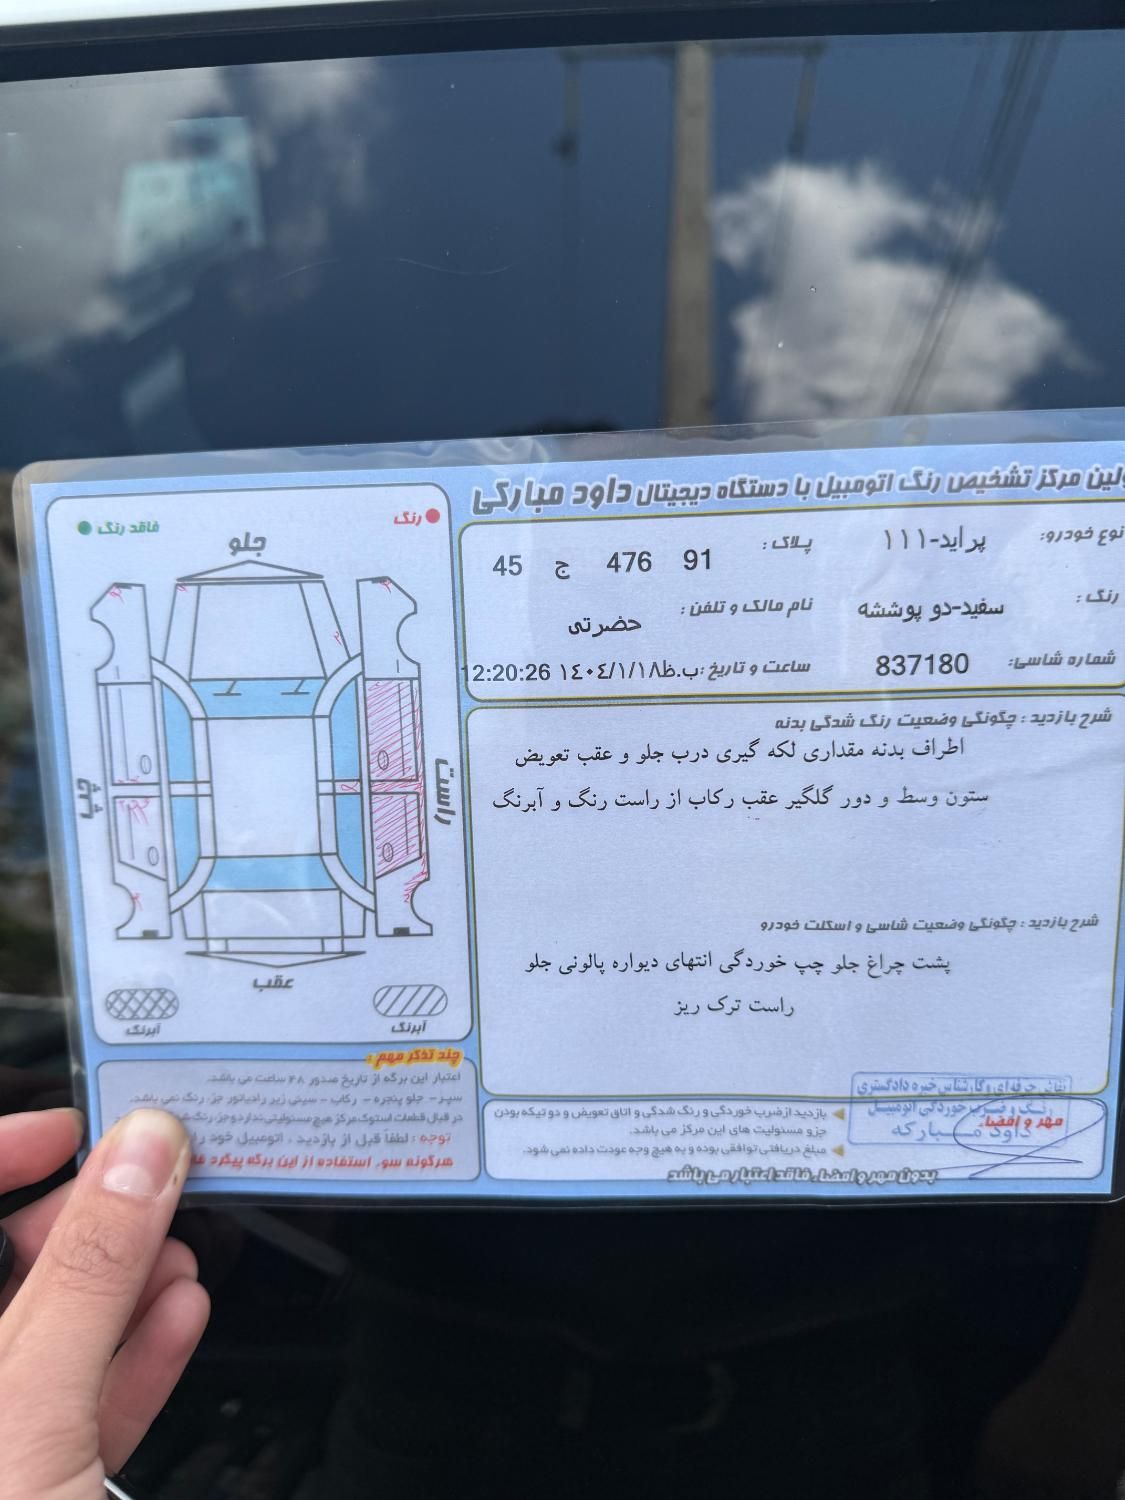 اولین مرکز تشخیص رنگ اتومبیل با دستگاه دیجیتال داود مبارکی
نوع خودرو: پراید-۱۱۱
پلاک: 45 ج 476 91
رنگ: سفید-دو پوششه
نام مالک و تلفن: حضرتی
شماره شاسی: 837180
ساعت و تاریخ: ب.ظ ۱۴۰۴/۱/۱۸ 12:20:26
شرح بازدید: چگونگی وضعیت رنگ شدگی بدنه
اطراف بدنه مقداری لکه گیری درب جلو و عقب تعویض
ستون وسط و دور گلگیر عقب رکاب از راست رنگ و آبرنگ
شرح بازدید: چگونگی وضعیت شاسی و اسکلت خودرو
پشت چراغ جلو چپ خوردگی انتهای دیواره پالونی جلو
راست ترک ریز
بازدید از ضرب خوردگی و رنگ شدگی و اتاق تعویض و دو تیکه بودن
جزو مسئولیت های این مرکز می باشد.
مبلغ دریافتی توافقی بوده و به هیچ وجه عودت داده نمی شود.
مهر و امضاء
نقاش حرفه ای و کارشناس خبره دادگستری
رنگ و ضرب خوردگی اتومبیل
بدون مهر و امضاء فاقد اعتبار می باشد
رنگ
فاقد رنگ
جلو
راست
چپ
عقب
آبرنگ
آبرنگ
چند تذکر مهم:
اعتبار این برگه از تاریخ صدور ۴۸ ساعت می باشد.
سپر - جلو پنجره - رکاب - سینی زیر رادیاتور جزء رنگ نمی باشد.
در قبال قطعات استوک مرکز هیچ مسئولیتی ندارد و جزء رنگ
توجه: لطفاً قبل از بازدید، اتومبیل خود را
هرگونه سوء استفاده از این برگه پیگرد